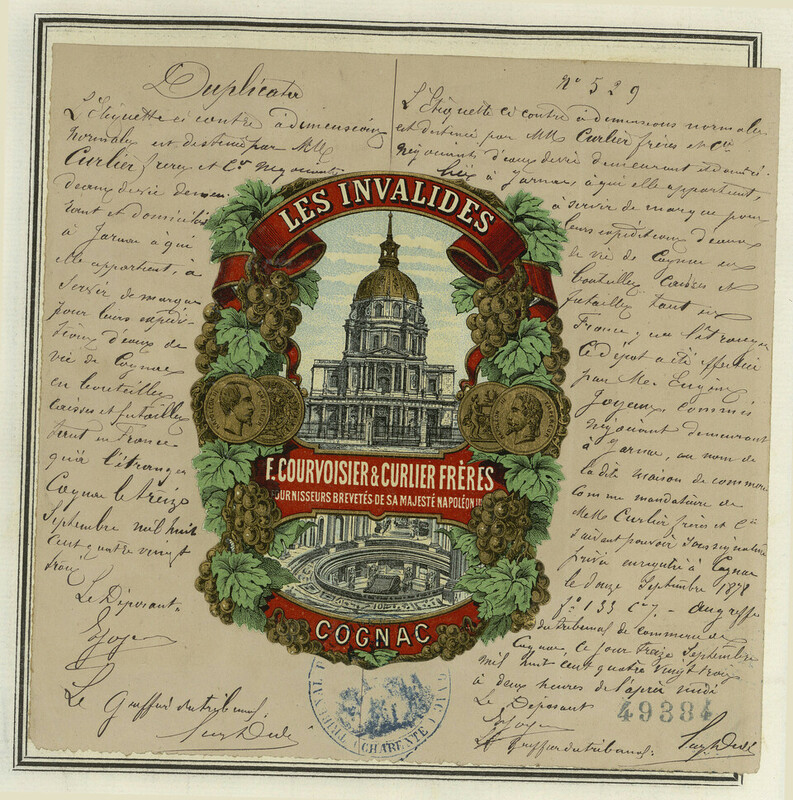 Duplicata
L'Etiquette ci contre à dimensions
normales est destinée par MM.
Curlier frères et Cie négociants
d'eaux de vie demeu-
rant et domiciliés
à Jarnac à qui
elle appartient, à
servir de marque
pour leurs expédi-
tions d'eaux de
vie de Cognac
en bouteilles
caisses et futailles
tant en France
qu'à l'étranger
Cognac le treize
Septembre mil huit
cent quatre vingt
trois
Le Déposant
Le Greffier du tribunal
N° 529
L'Etiquette ci contre à dimensions normales
est destinée par MM Curlier frères et Cie
négociants d'eaux de vie demeurant et domici-
liés à Jarnac à qui elle appartient,
à servir de marque pour
leurs expéditions d'eaux
de vie de Cognac en
bouteilles caisses et
futailles tant en
France qu'à l'étranger
Ce dépôt a été effectué
par Mr Eugène
Joyeux, commis
négociant demeurant
à Jarnac, au nom de
la dite maison de commerce
comme mandataire de
MM Curlier frères et Cie
suivant pouvoir sous signature
privée enregistré à Cognac
le douze Septembre 1878
f° 133 C 7. - Au greffe
du tribunal de commerce de
Cognac, ce jour treize Septembre
mil huit cent quatre vingt trois
à deux heures de l'après midi
Le Déposant
Le Greffier du tribunal
LES INVALIDES
F. COURVOISIER & CURLIER FRÈRES
FOURNISSEURS BREVETÉS DE SA MAJESTÉ NAPOLÉON III
COGNAC
(CHARENTE)
49384